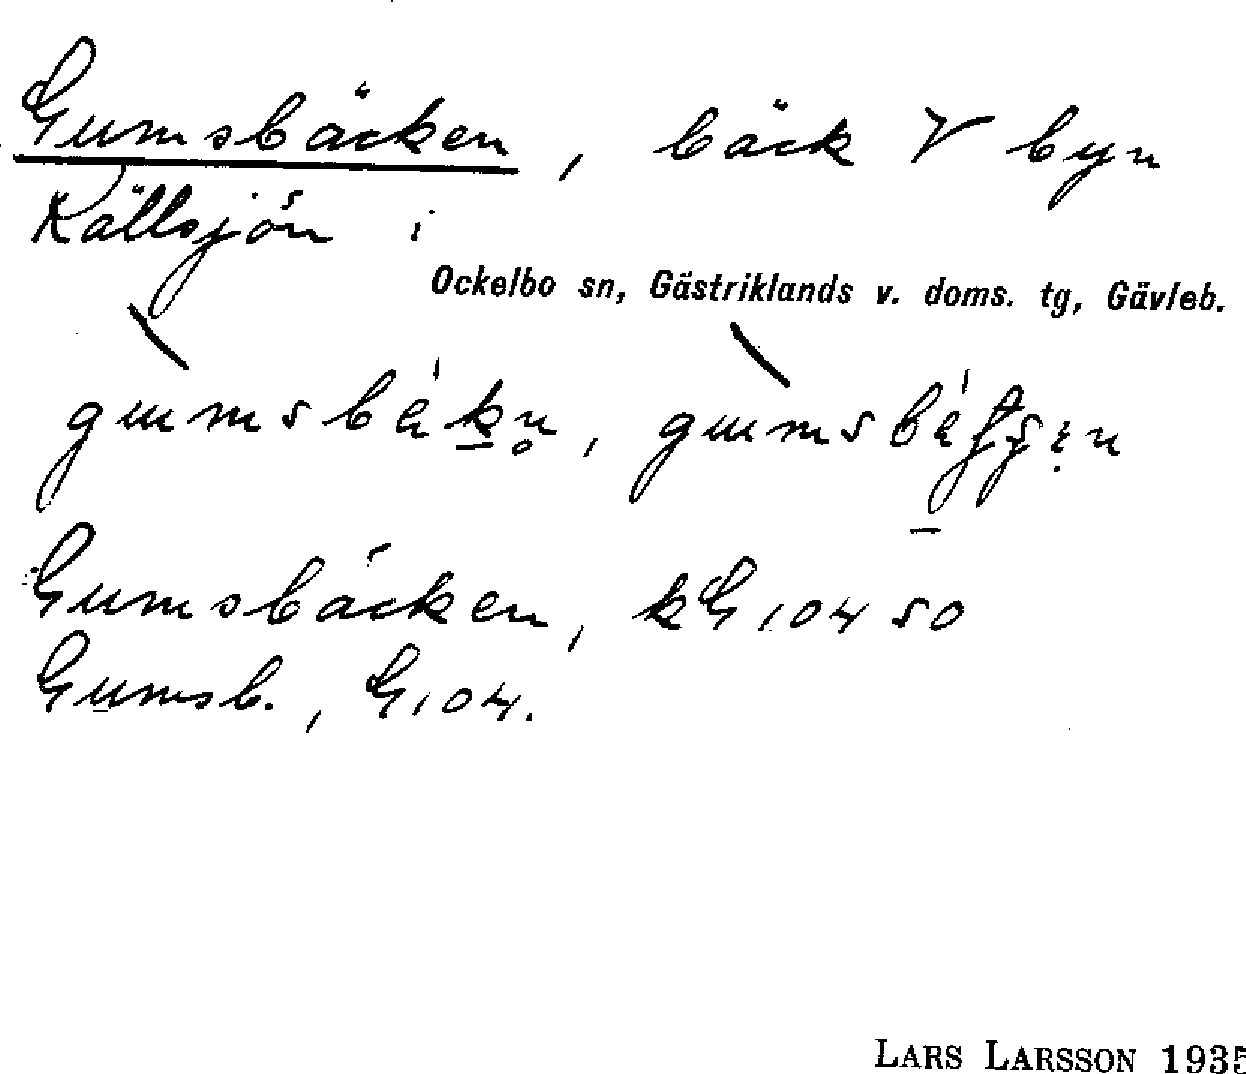 Gumsbäcken, bäck V byn
Källsjön i
Ockelbo sn, Gästriklands v. doms. tg, Gävleb.
Gumsbäcken, kG 104 50
Gumsb., G 104.
LARS LARSSON 1935